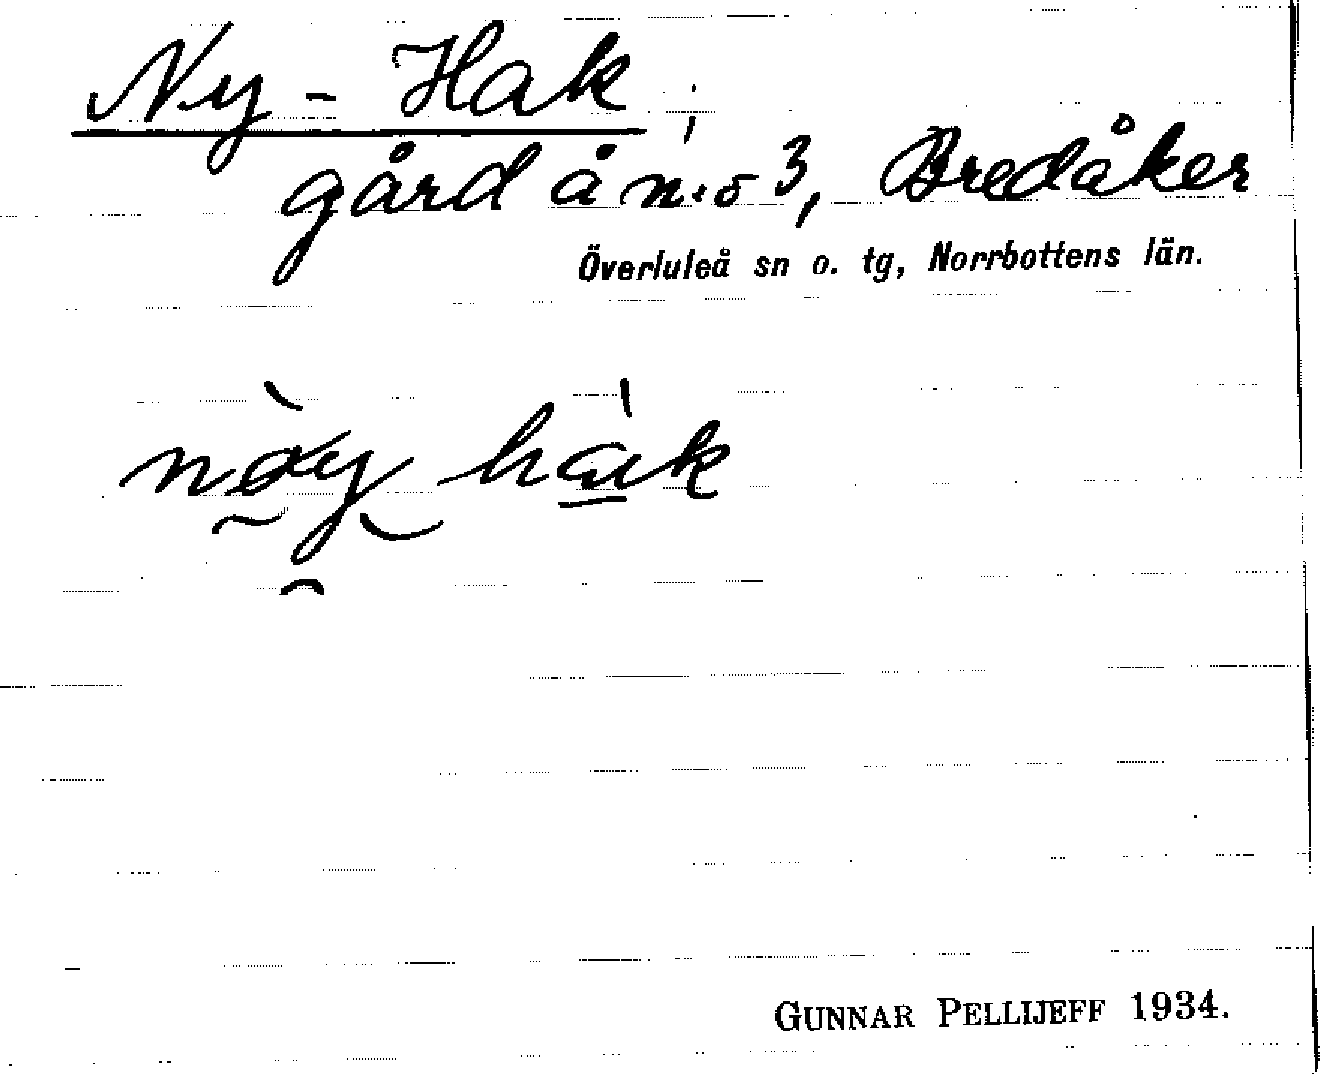 Ny-Hak;
gård å n:o 3, Bredåker
Överluleå sn o. tg, Norrbottens län.
GUNNAR PELLIJEFF 1934.